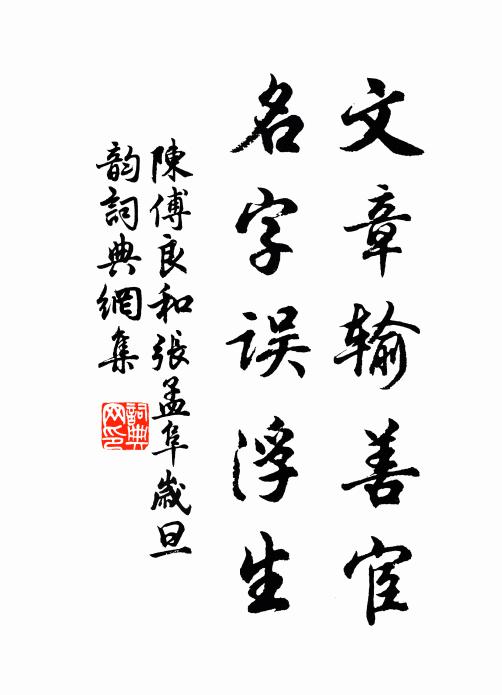 文章输善宦
名字误浮生
陳傅良和張孟阜歲旦
韵詞典網集
詞典
网印